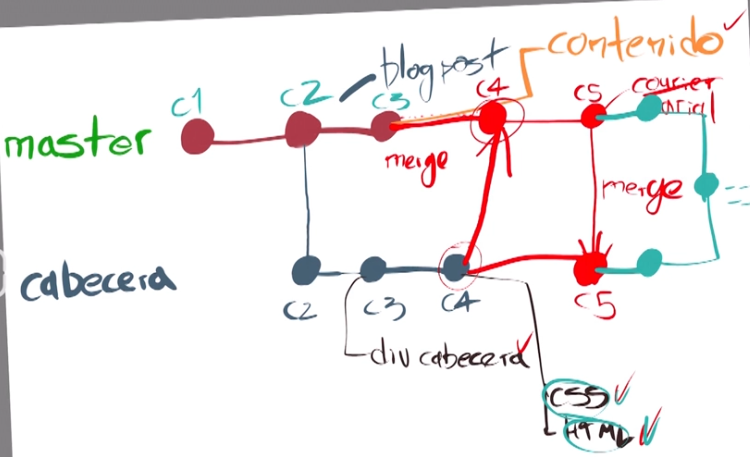 contenido
blogpost
c1
c2
c3
c4
c5
courier
arial
master
merge
merge
cabecera
c2
c3
c4
c5
div cabecera
CSS
HTML